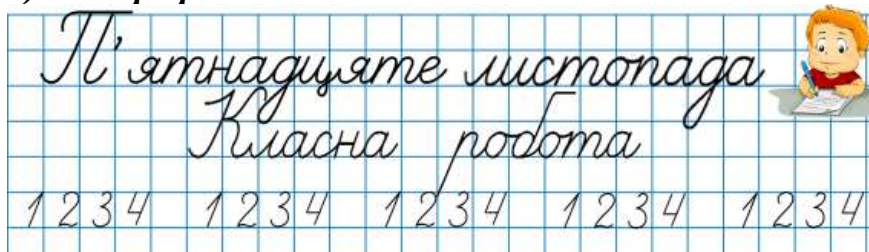 П'ятнадцяте листопада
Класна робота
1 2 3 4 1 2 3 4 1 2 3 4 1 2 3 4 1 2 3 4